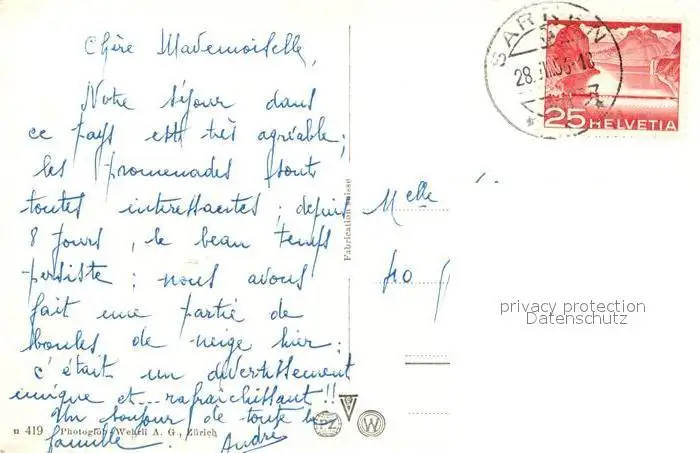 Chère Mademoiselle,
Notre séjour dans
ce pays est très agréable ;
les promenades sont
toutes intéressantes ; depuis
8 jours, le beau temps
persiste ; nous avons
fait une partie de
boules de neige hier :
c'était un divertissement
unique et...rafraîchissant !!
Un bonjour de toute la
famille. André
n 419 Photoglob-Wehrli A. G., Zürich
Fabrication Suisse
PZ W
SARNEN
25 HELVETIA
Melle
40
privacy protection
Datenschutz